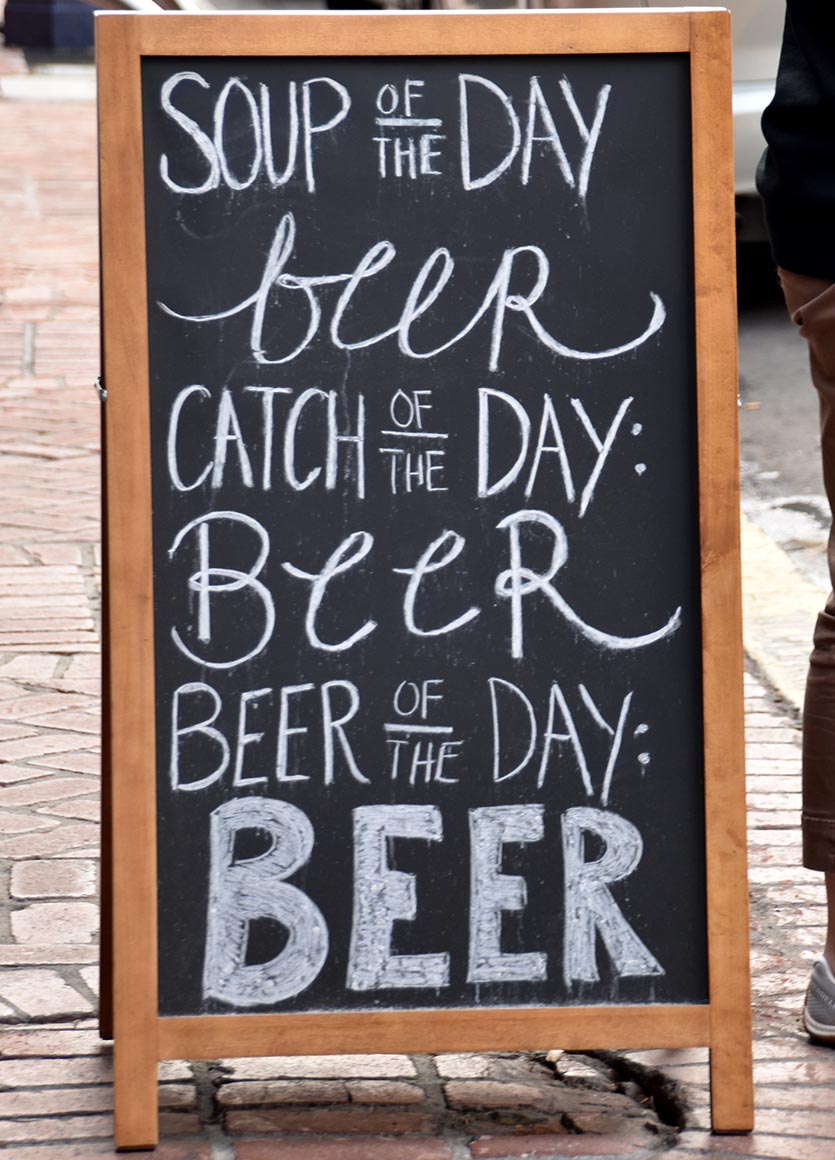 SOUP OF THE DAY
beer
CATCH OF THE DAY:
Beer
BEER OF THE DAY:
BEER